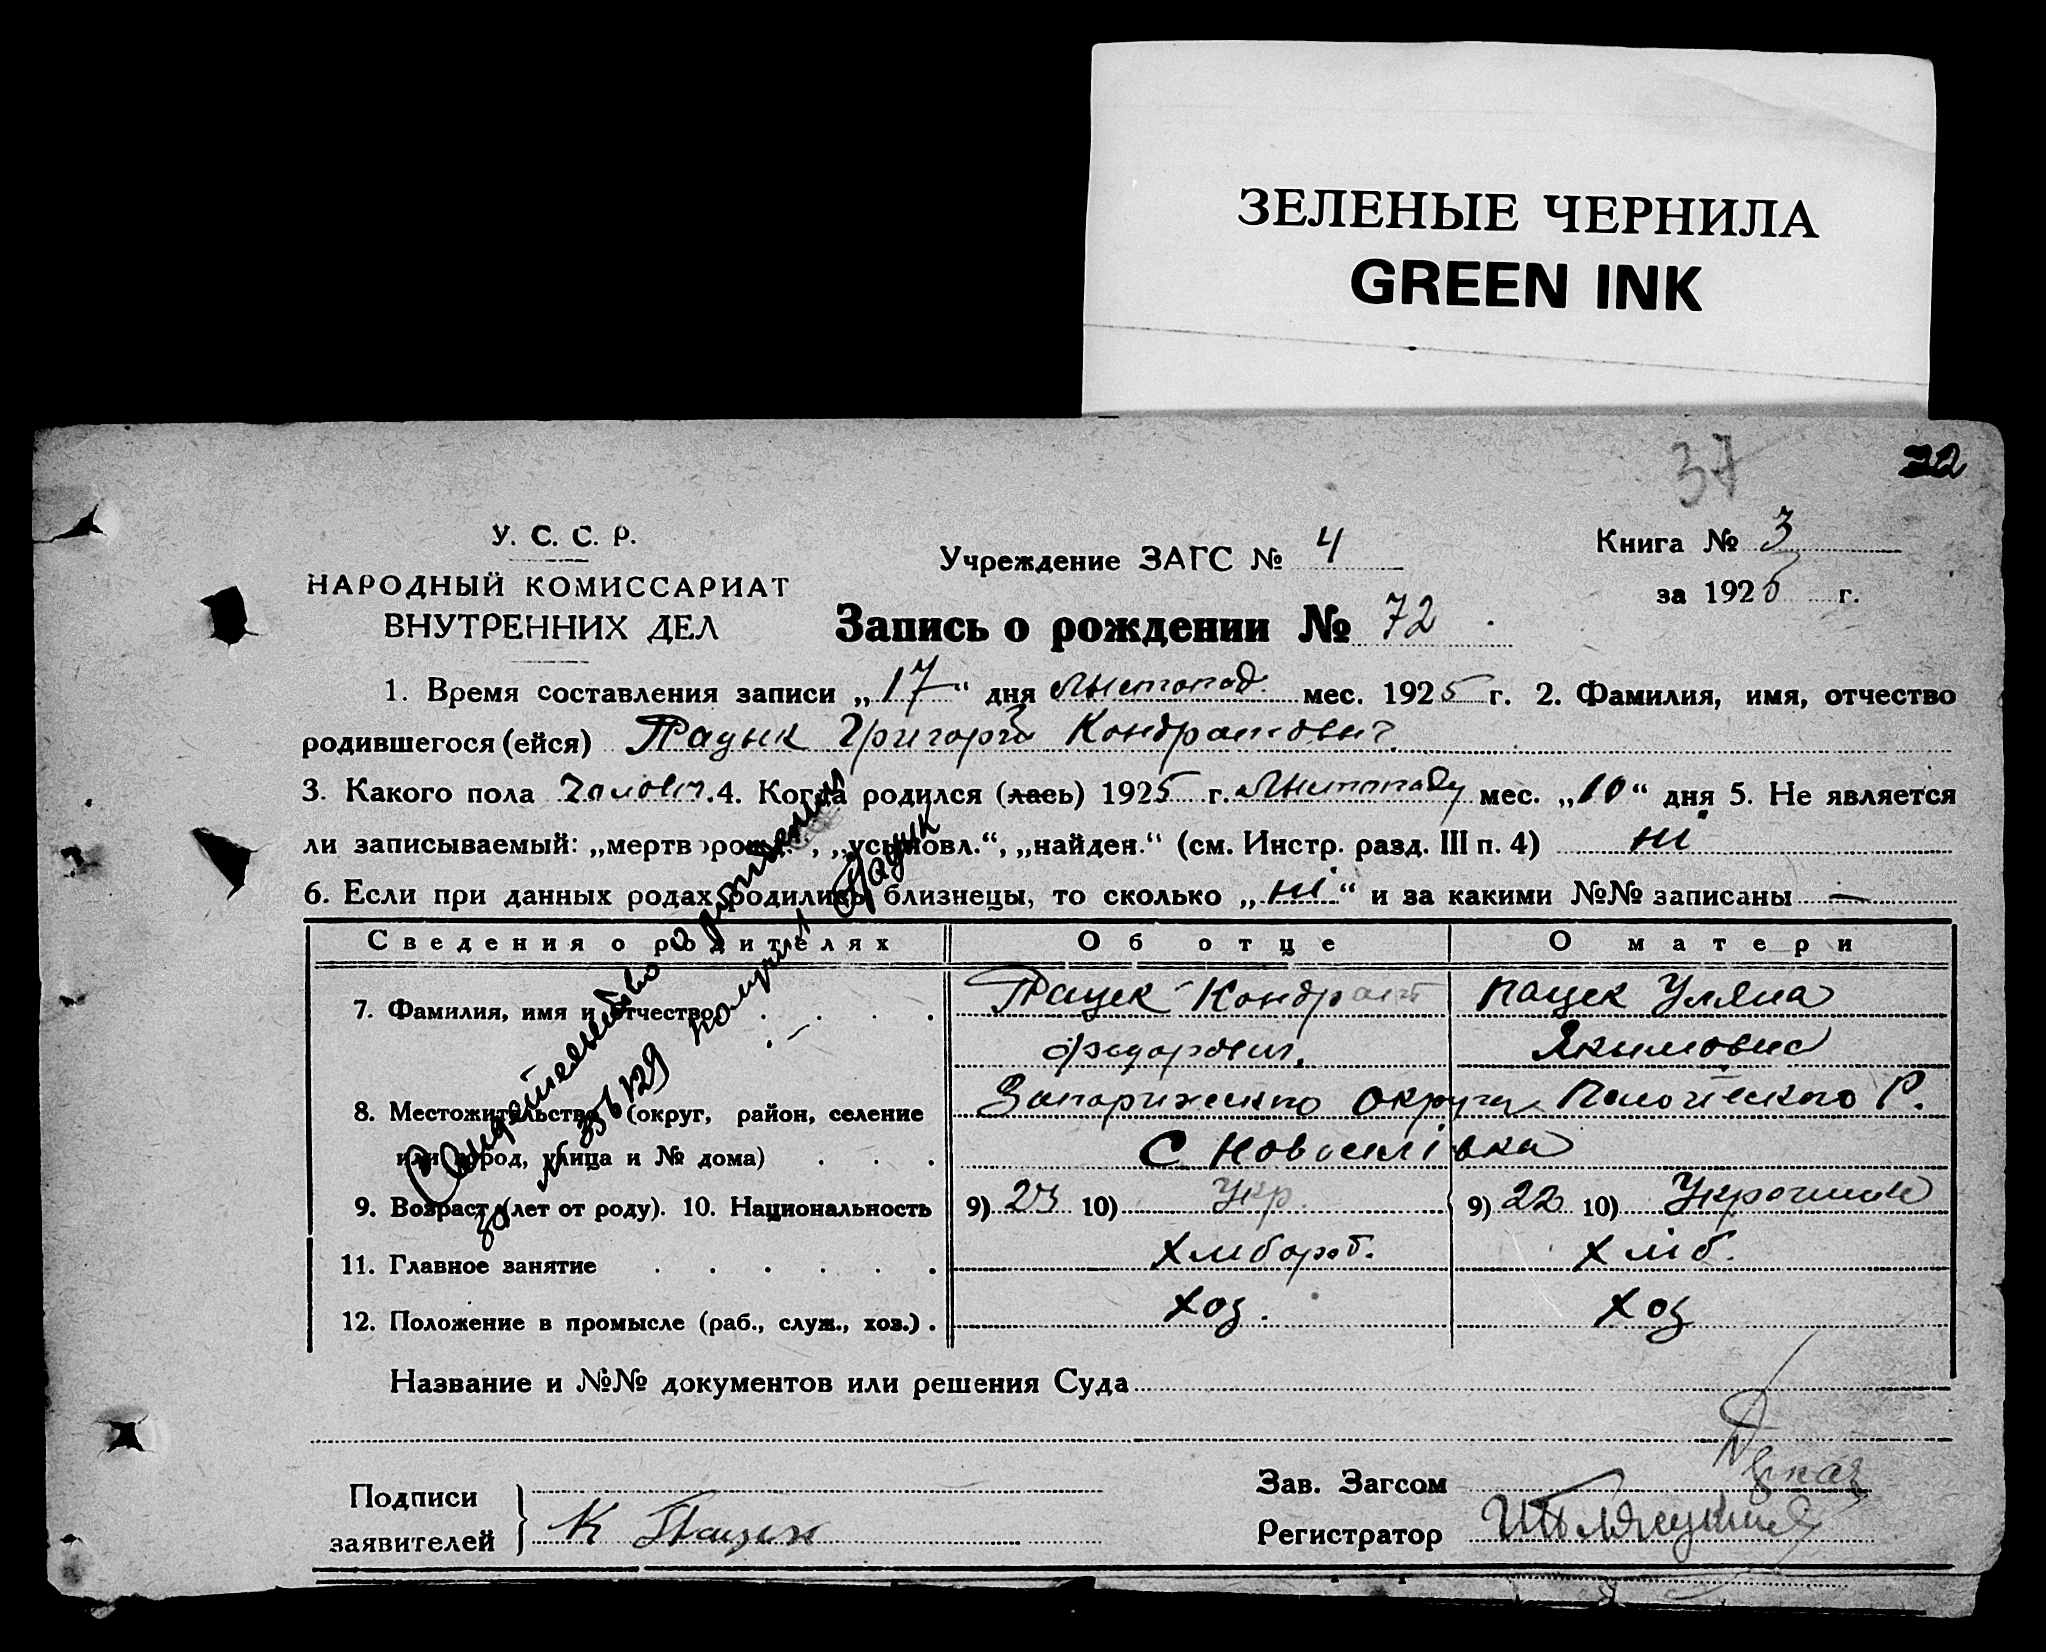 ЗЕЛЕНЫЕ ЧЕРНИЛА
GREEN INK
37
22
У. С. С. Р.
НАРОДНЫЙ КОМИССАРИАТ
ВНУТРЕННИХ ДЕЛ
Учреждение ЗАГС № 4
Книга № 3
за 1925 г.
Запись о рождении № 72
1. Время составления записи „17“ дня Листопад. мес. 1925 г. 2. Фамилия, имя, отчество
родившегося (ейся) Пацик Григорій Кондратович
3. Какого пола Чоловіч. 4. Когда родился (лась) 1925 г. Листопаду мес. „10“ дня 5. Не является
ли записываемый: „мертворожд.“, „усыновл.“, „найден.“ (см. Инстр. разд. III п. 4) ні
6. Если при данных родах родились близнецы, то сколько „ні“ и за какими №№ записаны —
Сведения о родителях Об отце О матери
7. Фамилия, имя и отчество Пацек Кондрат Пацек Уляна
Федорович. Якимовна
8. Местожительство (округ, район, селение Запорижского Округи Пологівского Р.
или город, улица и № дома) С Новоселівка
9. Возраст (лет от роду). 10. Национальность 9) 23 10) Укр. 9) 22 10) Украинка
11. Главное занятие хлібороб. хліб.
12. Положение в промысле (раб., служ., хоз.) хоз. хоз
Свидетельство о рождении
за № 356129 получил Пацик
Название и №№ документов или решения Суда
Подписи
заявителей К Пацек
Зав. Загсом
Регистратор